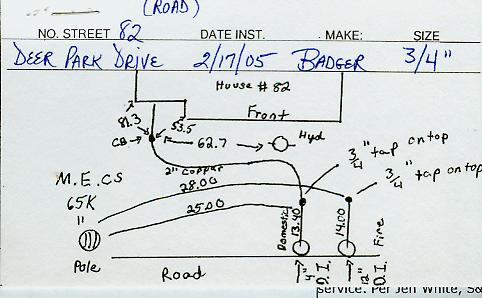 (ROAD)
NO. STREET 82 DATE INST. MAKE: SIZE
DEER PARK DRIVE 2/17/05 BADGER 3/4"
House # 82
Front
81.3
53.5
CB
62.7
Hyd
3/4" tap on top
3/4" tap on top
2" copper
M.E.CS
65K
1"
28.00
25.00
Pole
Domestic
13.40
14.00
Fire
Road
4" D.I.
12" D.I.
service. Per Jen White, S&